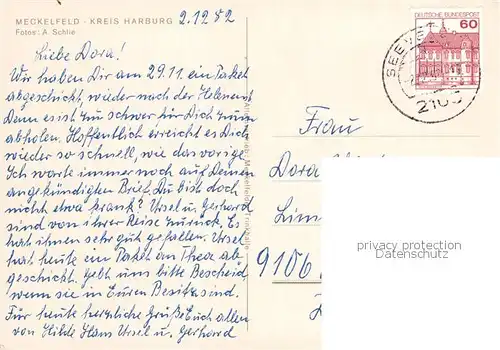 MECKELFELD - KREIS HARBURG 2.12.82
Fotos: A. Schlie
Liebe Dora!
Wir haben Dir am 29.11. ein Paket
abgeschickt, wieder nach der
Denn es ist zu schwer für Dich zum
abholen. Hoffentlich erreicht es Dich
wieder so schnell, wie das vorige.
Ich warte immer noch auf Deinen
angekündigten Brief. Du bist doch
nicht etwa krank? Ursel u. Gerhard
sind von ihrer Reise zurück. Es
hat ihnen sehr gut gefallen. Ursel
hat heute ein Paket an Thea ab
geschickt. Gebt uns bitte Bescheid
wenn sie in Euren Besitz sind.
Für heute herzliche Grüße Euch allen
von Hilde Hans Ursel u. Gerhard
DEUTSCHE BUNDESPOST
60
SEEVE
2105
Frau
Dora
Lim
9106
privacy protection
AnsichtskartenVersand